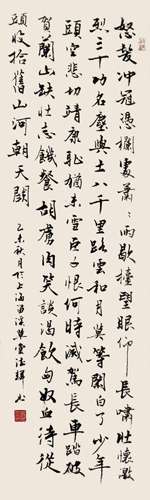 怒髮冲冠憑欄處蕭蕭雨歇擡望眼仰天長嘯壯懷激
烈三十功名塵與土八千里路雲和月莫等閑白了少年
頭空悲切靖康恥猶未雪臣子恨何時滅駕長車踏破
賀蘭山缺壯志飢餐胡虜肉笑談渴飲匈奴血待從
頭收拾舊山河朝天闕
乙未秋月於上海草堂